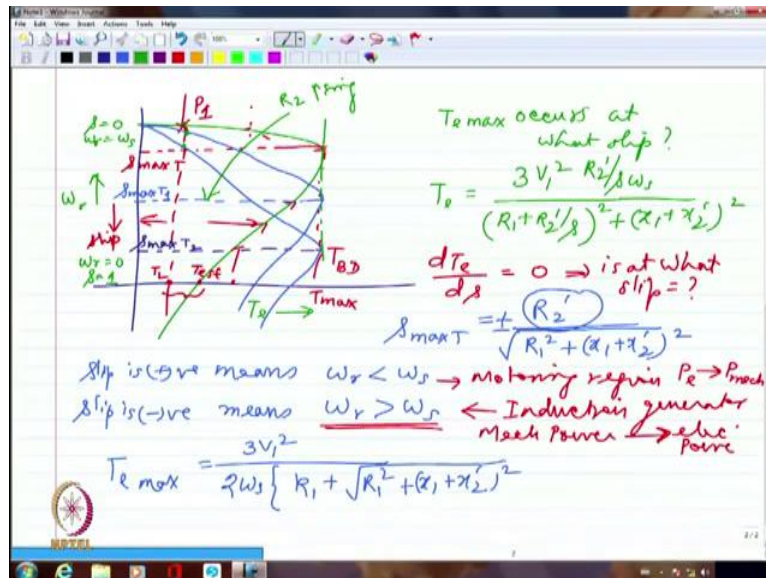 Note1 - Windows Journal
File Edit View Insert Actions Tools Help
B I
P1
R2 ↑sing
s=0
ωr=ωs
smaxT
smaxT1
ωr ↑
slip
smaxT2
ωr=0
s=1
TL
Test
TBD
Te →
Tmax
Te max occurs at
what slip?
Te = 3V1² R2'/sωs / (R1+R2'/s)² + (x1+x2')²
dTe/ds = 0 ⇒ is at what
slip=?
smaxT = ± R2' / √R1² + (x1+x2')²
Slip is (+)ve means ωr < ωs → Motoring region Pe → Pmech
Slip is (-)ve means ωr > ωs ← Induction generator
Mech Power → elec
Power
Te max = 3V1² / 2ωs { R1 + √R1² + (x1+x2')²
NPTEL
2/2